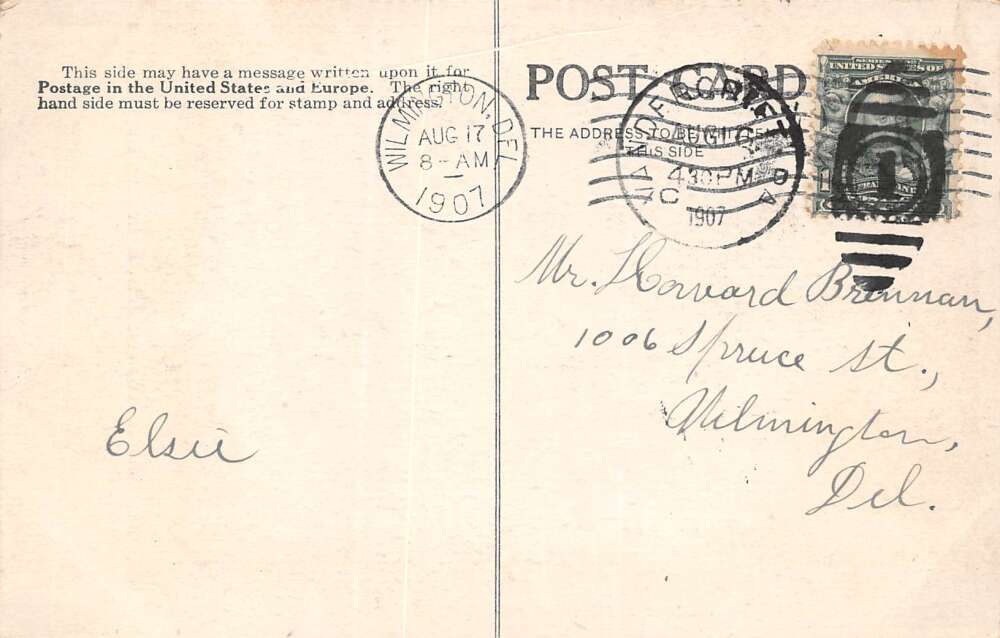 This side may have a message written upon it for
Postage in the United States and Europe. The right
hand side must be reserved for stamp and address.
WILMINGTON, DEL
AUG 17
8 - AM
1907
POST CARD
THE ADDRESS TO BE WRITTEN ON
THIS SIDE
VANDERGRIFT
AUG 16
430 PM
1907
SERIES 1902
UNITED STATES OF
AMERICA
1
Mr. Howard Brennan,
1006 Spruce St.,
Wilmington,
Del.
Elsie